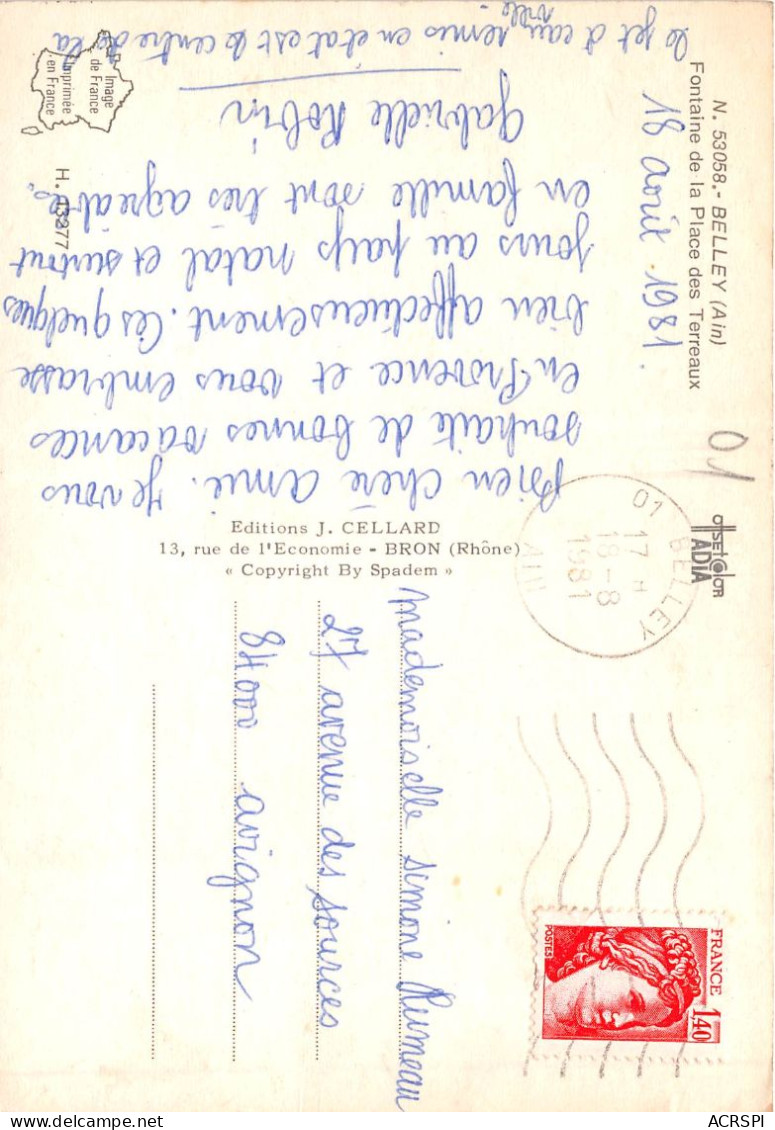 N. 53058.- BELLEY (Ain)
Fontaine de la Place des Terreaux
18 août 1981.
Bien chère amie. Je vous
souhaite de bonnes vacances
en Provence et vous embrasse
bien affectueusement. Ces quelques
jours au pays natal et surtout
en famille sont très agréables.
Gabrielle Robin
Le jet d'eau remis en état est le centre de la
ville
Image
de France
Imprimée
en France
H. 13277
Editions J. CELLARD
13, rue de l'Economie - BRON (Rhône)
« Copyright By Spadem »
OFFSET COLOR
ADIA
01
01 BELLEY
17 H
18-8
1981
AIN
FRANCE
1,40
POSTES
Mademoiselle Simone Rumeau
27 avenue des sources
84000 avignon
ACRSPI